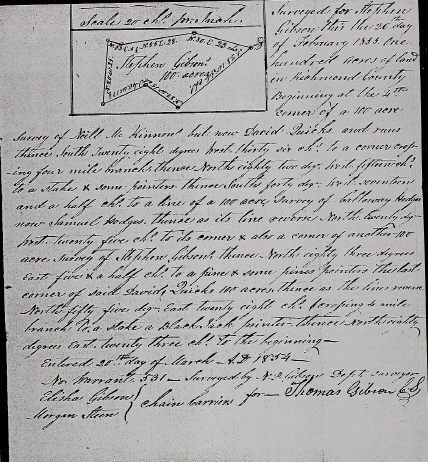 Scale 20 chs. pr. Inch.
Stephen Gibson
100 acres
Surveyed for Stephen
Gibson this the 26th day
of February 1833. One
hundred acres of land
in Richmond County
Beginning at the 4th
corner of a 100 acre
Survey of Neill McKinnons but now David Quicks and runs
thence South twenty eight degrees West. thirty six chs. to a corner crop-
ing four mile branch, thence North eighty two deg. West. fifteen chs.
to a Stake & some pointers thence South forty deg. West. seventeen
and a half chs. to a line of a 100 acre Survey of Calloway Hodges
now Samuel Hodges. thence as its line reverse North. twenty deg.
West. twenty five chs. to its corner & also a corner of another 100
acre Survey of Stephen Gibsons thence North eighty three degrees
East five & a half chs. to a pine & some pines pointers the last
corner of said David Quicks 100 acres, thence as the lines
North fifty five deg. East twenty eight chs. Croping 4 mile
branch to a Stake a Black Jack pointer thence North eighty
degrees East twenty three chs. to the beginning—
Entered 20th day of March A.D 1854—
No. Warrant 531— Surveyed by Gibson Dept. surveyor
Elisha Gibson
Morgan Steen
Chain Carriers
for— Thomas Gibson C S